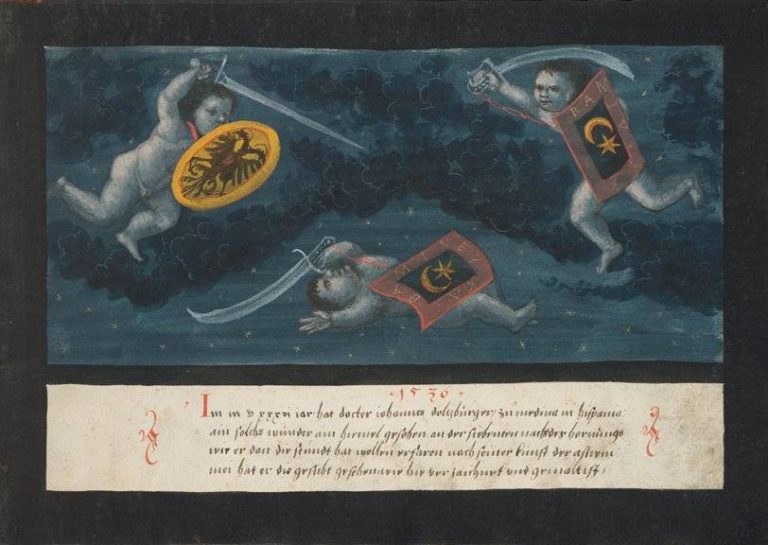 · 1536 ·
Im m v xxxvi iar hat docter iohannes dolzburger, zu medina in hispania
ain solchs wunder am himel gesehen an der siebenten nacht der hornungs
wie er dan die stundt hat wollen erfaren nach seiner kunst der
hat er die gesicht gesehen wie hie ver zaichnet vnd gemalt ist,